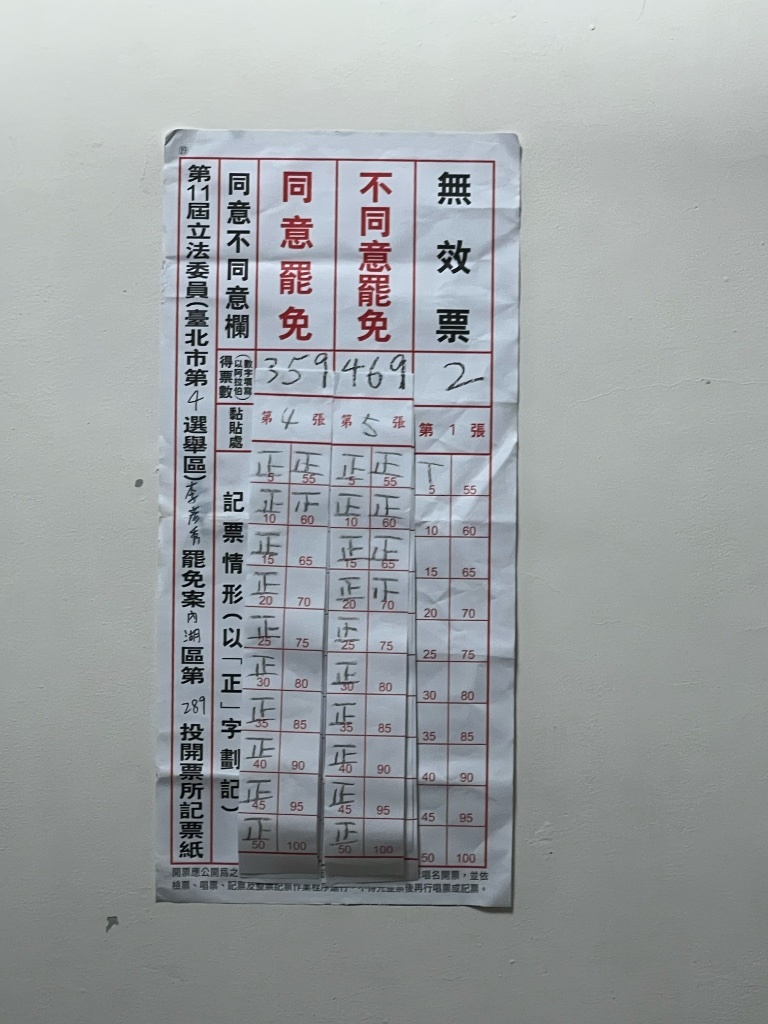 ⑲
第11屆立法委員(臺北市第4選舉區)李彥秀罷免案內湖區第289投開票所記票紙
同意不同意欄
同意罷免
不同意罷免
無效票
得票數(以阿拉伯數字填寫)
359
469
2
黏貼處
第4張
第5張
第1張
記票情形(以「正」字劃記)
正 正
5 55
正 正
10 60
正
15 65
正
20 70
正
25 75
正
30 80
正
35 85
正
40 90
正
45 95
正
50 100
正 正
5 55
正 正
10 60
正 正
15 65
正 正
20 70
正
25 75
正
30 80
正
35 85
正
40 90
正
45 95
正
50 100
丅
5 55
10 60
15 65
20 70
25 75
30 80
35 85
40 90
45 95
50 100
開票應公開為之 唱名開票，並依
檢票、唱票、記票及整票記票作業程序進行，不得先整票後再行唱票或記票。